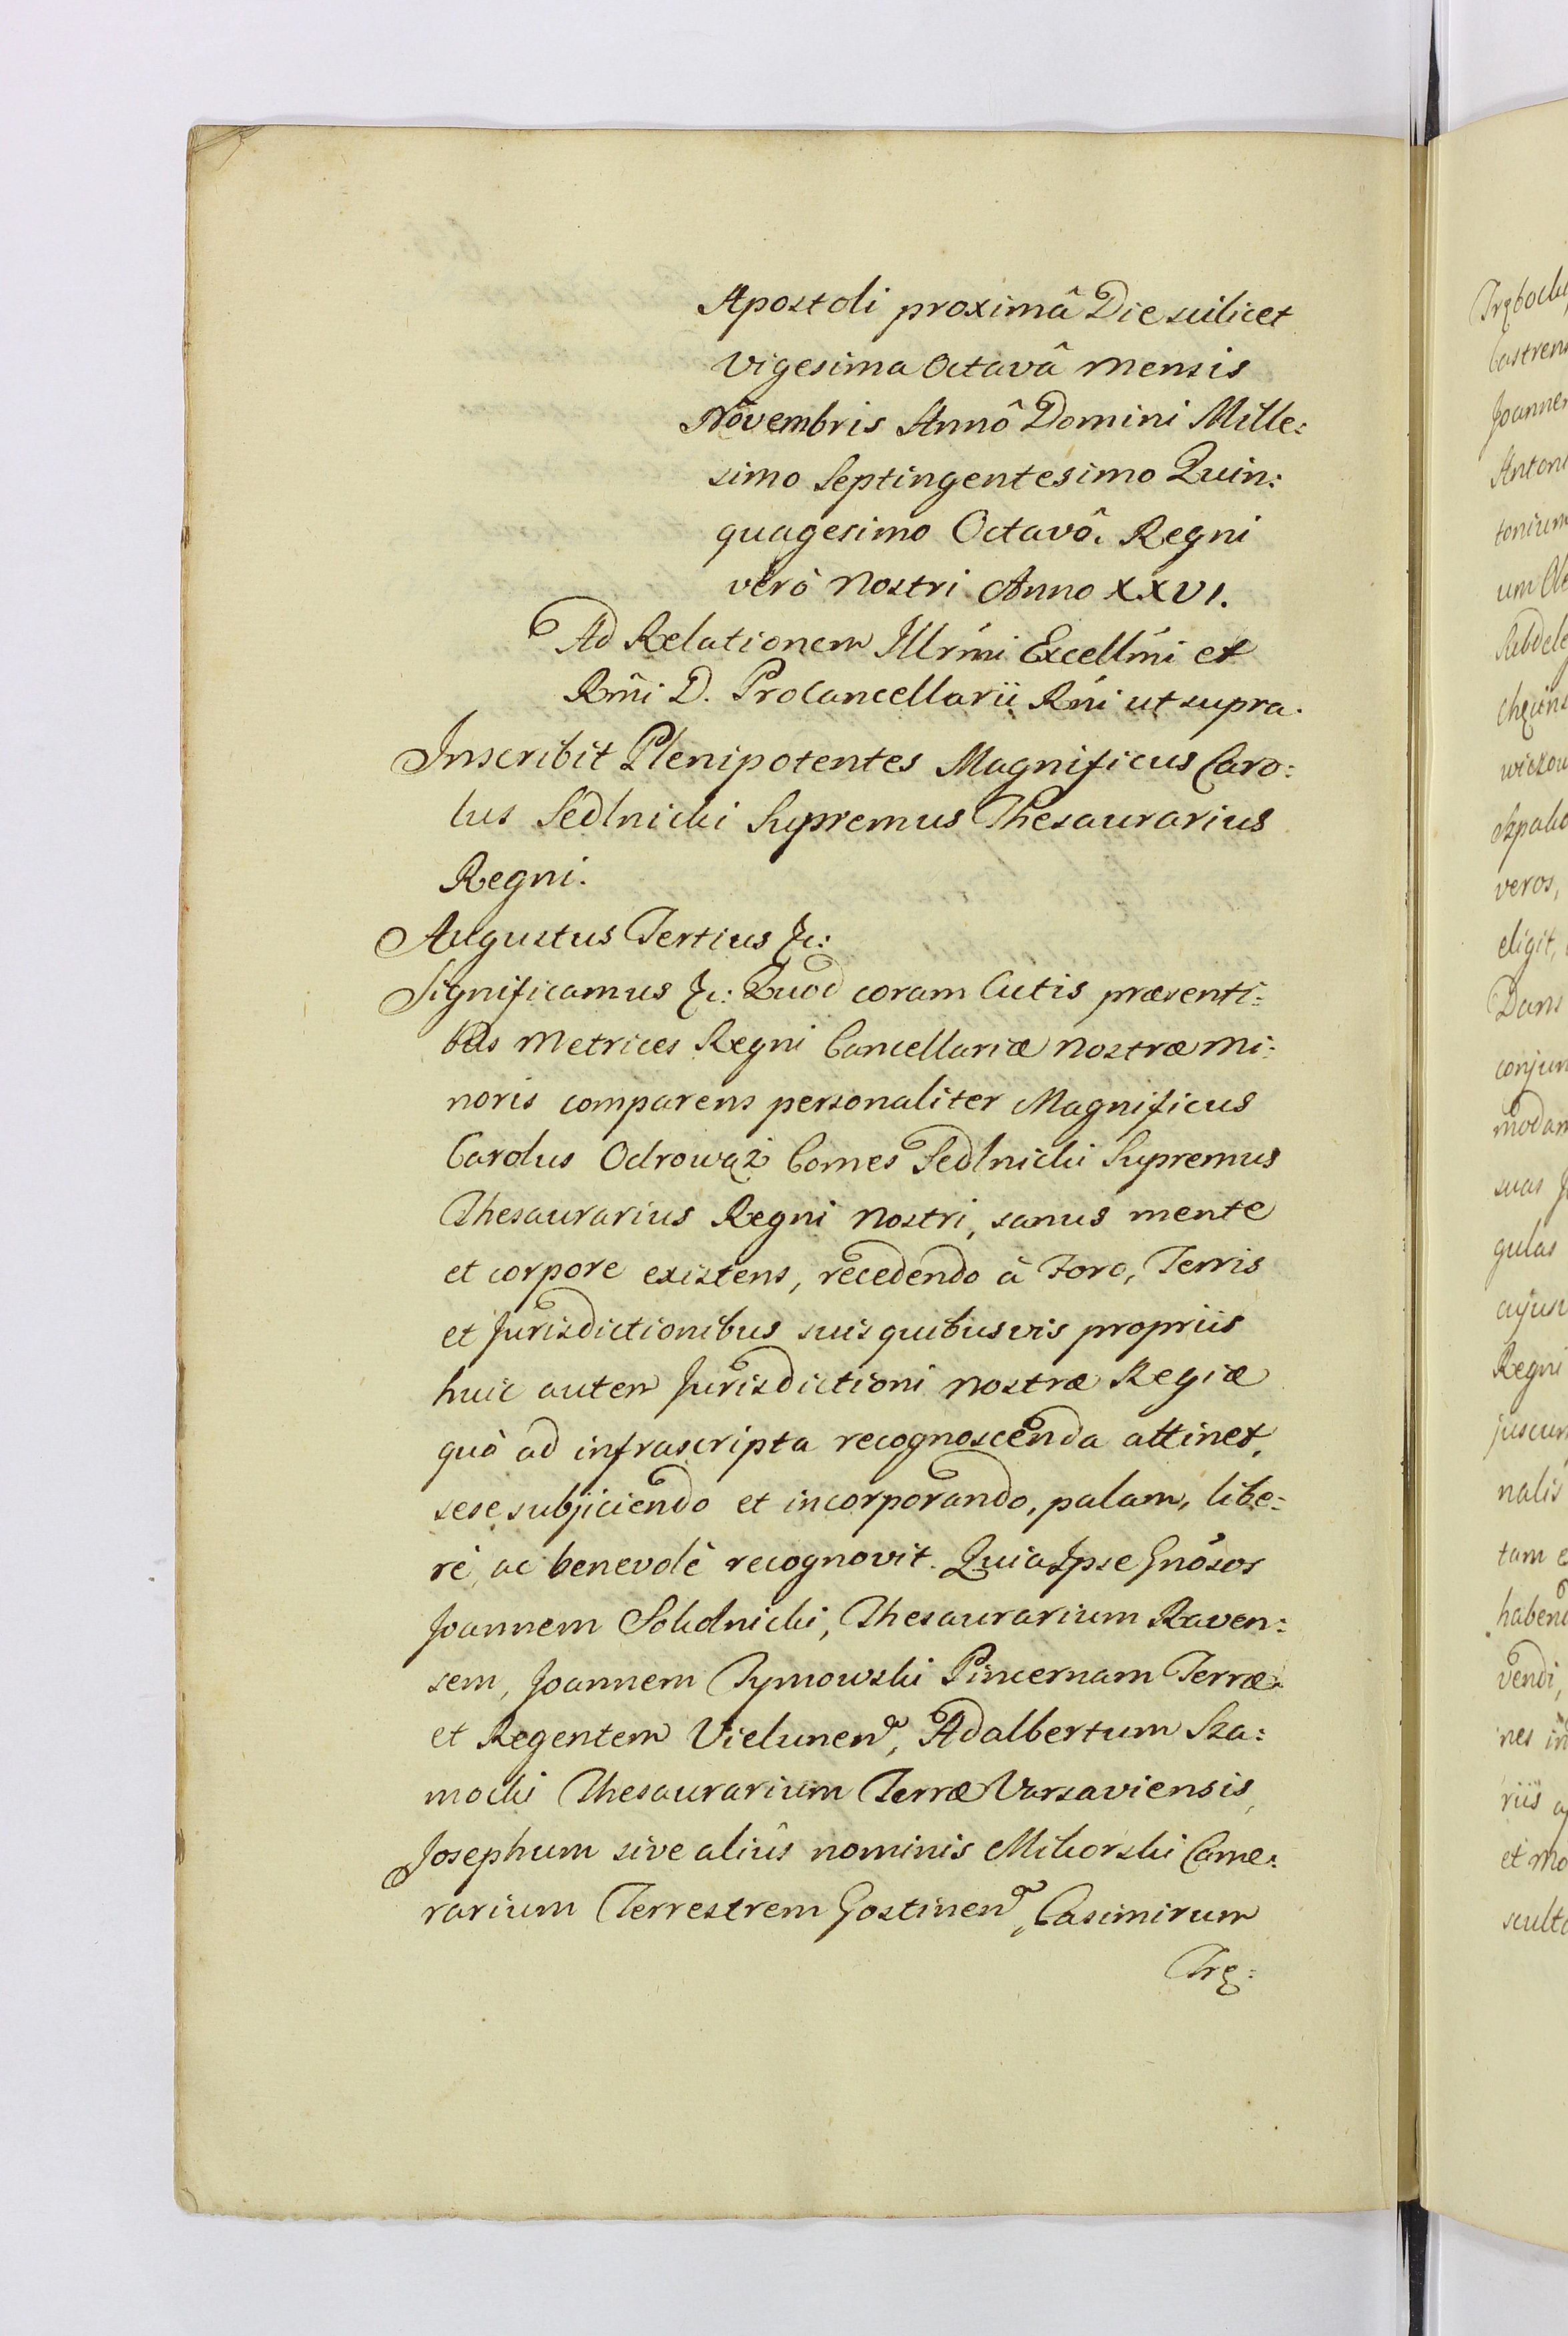 Apostoli proximâ Die scilicet
Vigesima Octavâ Mensis
Novembris Annô Domini Mille:
simo Septingentesimo Quin:
quagesimo Octavô. Regni
verò Nostri Anno XXVI.
Ad Relationem Illrm̃i Excellm̃i et
Rm̃i D. ProCancellarii Rñi ut supra.
Inscribit Plenipotentes Magnificus Caro:
lus Sedlnicki Supremus Thesaurarius
Regni.
Augustus Tertius &c:
Significamus &c: Quod coram Actis præsenti:
bus Metrices Regni Cancellariæ Nostræ Mi:
noris comparens personaliter Magnificus
Carolus Odrowąż Comes Sedlnicki Supremus
Thesaurarius Regni Nostri, sanus mente
et corpore existens, recedendo à Foro, Terris
et Jurisdictionibus suis quibusvis propriis
huic autem Jurisdictioni Nostræ Regiæ
quò ad infrascripta recognoscenda attinet,
sese subjiciendo et incorporando, palam, libe:
rè, ac benevolè recognovit. Quia Ipse Gnõsos
Joannem Sokolnicki, Thesaurarium Raven:
sem, Joannem Tymowski Pincernam Terræ
et Regentem Vielunen, Adalbertum Sza:
mocki Thesaurarium Terræ Varsaviensis,
Josephum sive aliûs nominis Mikorski Came:
rarium Terrestrem Gostinen, Casimirum
Trę: